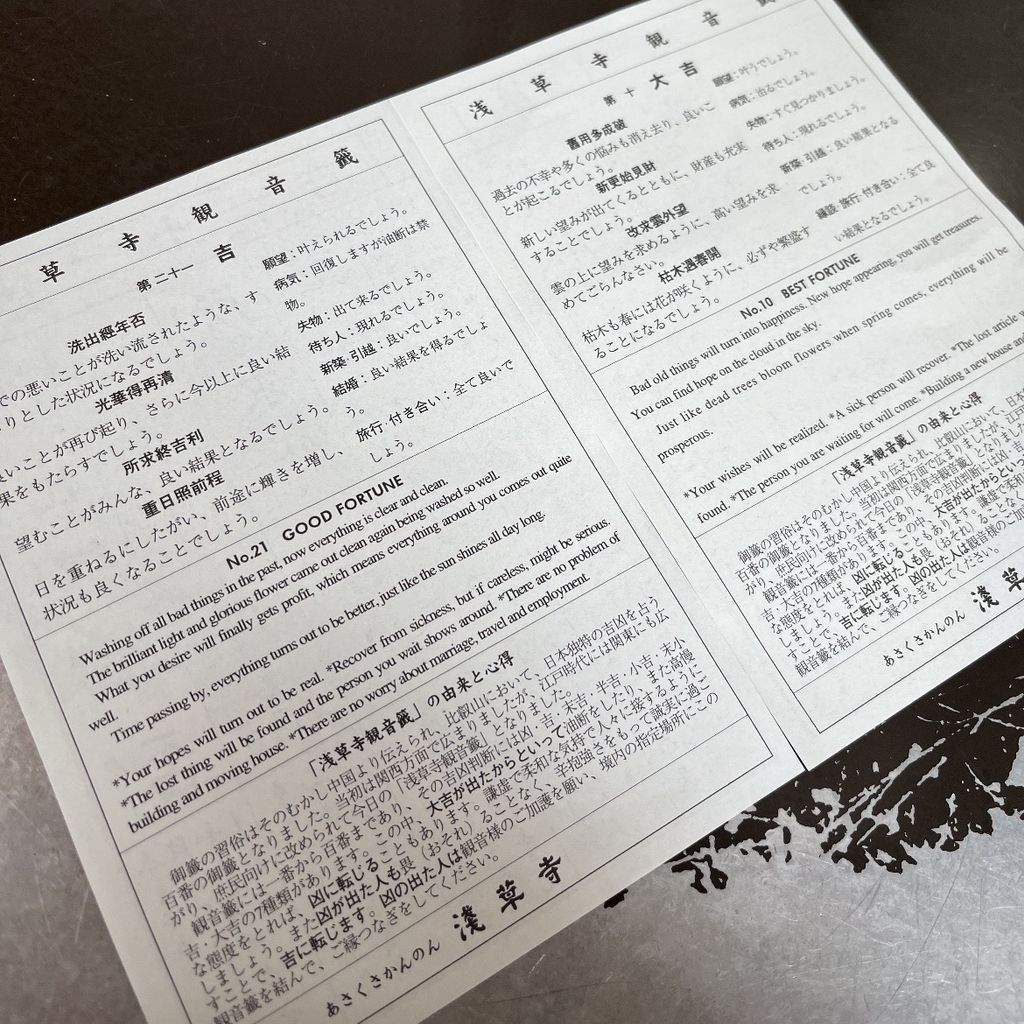 草 寺 観 音 籤
第二十一 吉
洗出經年否
での悪いことが洗い流されたような、す
りとした状況になるでしょう。
光華得再清
いことが再び起り、さらに今以上に良い結
果をもたらすでしょう。
所求終吉利
望むことがみんな、良い結果となるでしょう。
重日照前程
日を重ねるにしたがい、前途に輝きを増し、
状況も良くなることでしょう。
願望：叶えられるでしょう。
病気：回復しますが油断は禁
物。
失物：出て来るでしょう。
待ち人：現れるでしょう。
新築・引越：良いでしょう。
結婚：良い結果を得るでしょ
う。
旅行・付き合い：全て良いで
しょう。
No.21 GOOD FORTUNE
Washing off all bad things in the past, now everything is clear and clean.
The brilliant light and glorious flower came out clean again being washed so well.
What you desire will finally gets profit, which means everything around you comes out quite
well.
Time passing by, everything turns out to be better, just like the sun shines all day long.
*Your hopes will turn out to be real. *Recover from sickness, but if careless, might be serious.
*The lost thing will be found and the person you wait shows around. *There are no problem of
building and moving house. *There are no worry about marriage, travel and employment.
「浅草寺観音籤」の由来と心得
御籤の習俗はそのむかし中国より伝えられ、比叡山において、日本独特の吉凶を占う
百番の御籤となりました。当初は関西方面で広まりましたが、江戸時代には関東にも広
がり、庶民向けに改められて今日の「浅草寺観音籤」となりました。
観音籤には一番から百番まであり、その吉凶判断には凶・吉・末吉・半吉・小吉・末小
吉・大吉の7種類があります。この中、大吉が出たからといって油断をしたり、また高慢
な態度をとれば、凶に転じることもあります。謙虚で柔和な気持で人々に接するように
しましょう。また凶が出た人も畏（おそれ）ることなく、辛抱強さをもって誠実に過ご
すことで、吉に転じます。凶の出た人は観音様のご加護を願い、境内の指定場所にこの
観音籤を結んで、ご縁つなぎをしてください。
あさくさかんのん 淺草寺
浅 草 寺 観 音 籤
第十 大吉
舊用多成破
過去の不幸や多くの悩みも消え去り、良いこ
とが起こるでしょう。
新更始見財
新しい望みが出てくるとともに、財産も充実
することでしょう。
改求雲外望
雲の上に望みを求めるように、高い望みを求
めてごらんなさい。
枯木遇春開
枯木も春には花が咲くように、必ずや繁盛す
ることになるでしょう。
願望：叶うでしょう。
病気：治るでしょう。
失物：すぐ見つかりましょう。
待ち人：現れるでしょう。
新築・引越：良い結果となる
でしょう。
縁談・旅行・付き合い：全て良
い結果となるでしょう。
No.10 BEST FORTUNE
Bad old things will turn into happiness. New hope appearing, you will get treasures.
You can find hope on the cloud in the sky.
Just like dead trees bloom flowers when spring comes, everything will be
prosperous.
*Your wishes will be realized. *A sick person will recover. *The lost article
found. *The person you are waiting for will come. *Building a new house and
「浅草寺観音籤」の由来と心得
御籤の習俗はそのむかし中国より伝えられ、比叡山において、日本
百番の御籤となりました。当初は関西方面で広まりましたが、江戸
がり、庶民向けに改められて今日の「浅草寺観音籤」となりました
観音籤には一番から百番まであり、その吉凶判断には凶・吉
吉・大吉の7種類があります。この中、大吉が出たからとい
な態度をとれば、凶に転じることもあります。謙虚で柔
しましょう。また凶が出た人も畏（おそれ）ること
すことで、吉に転じます。凶の出た人は観音様の
観音籤を結んで、ご縁つなぎをしてください。
あさくさかんのん 淺草